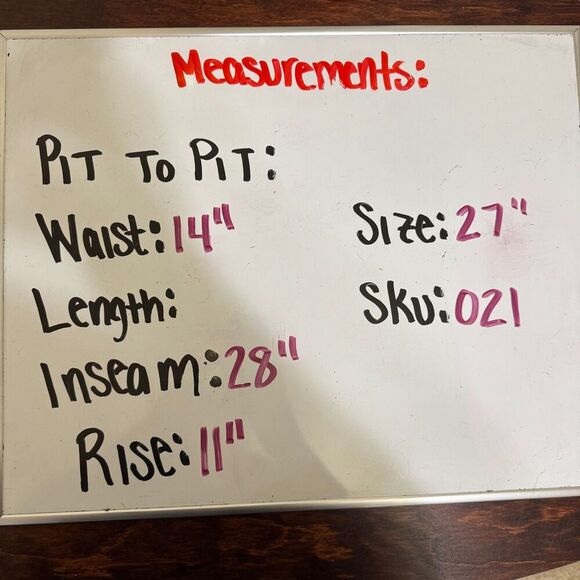 Measurements:
Pit To Pit:
Waist: 14"
Size: 27"
Length:
Sku: 021
Inseam: 28"
Rise: 11"